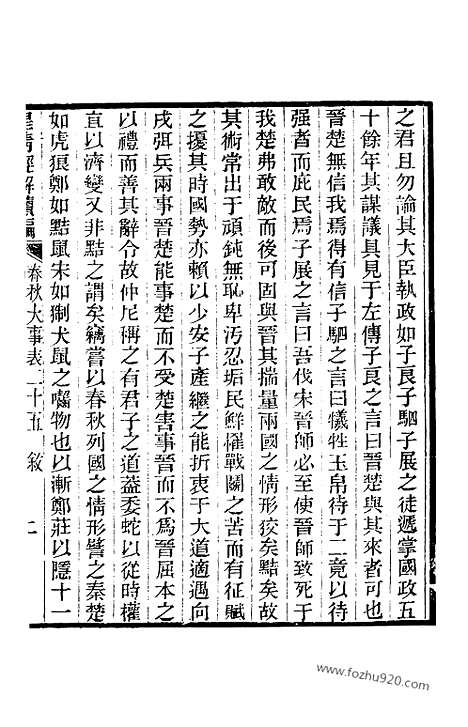 之君且勿論其大臣執政如子良子駟子展之徒遞掌國政五
十餘年其謀議具見于左傳子良之言曰晉楚與其來者可也
晉楚無信我焉得有信子駟之言曰犧牲玉帛待于二竟以待
强者而庇民焉子展之言曰吾伐宋晉師必至使晉師致死于
我楚弗敢敵而後可固與晉其揣量兩國之情形狡矣黠矣故
其術常出于頑鈍無恥卑污忍垢民鮮罹戰鬬之苦而有征賦
之擾其時國勢亦賴以少安子產繼之能折衷于大道適遇向
戌弭兵兩事晉楚能事楚而不受楚害事晉而不爲晉屈本之
以禮而善其辭令故仲尼稱之有君子之道蓋委蛇以從時權
宜以濟變又非黠之謂矣竊嘗以春秋列國之情形譬之秦楚
如虎狼鄭如黠鼠宋如猘犬鼠之囓物也以漸鄭莊以隱十一
皇清經解續編 春秋大事表二十五 敘 二
www.fozhu920.com